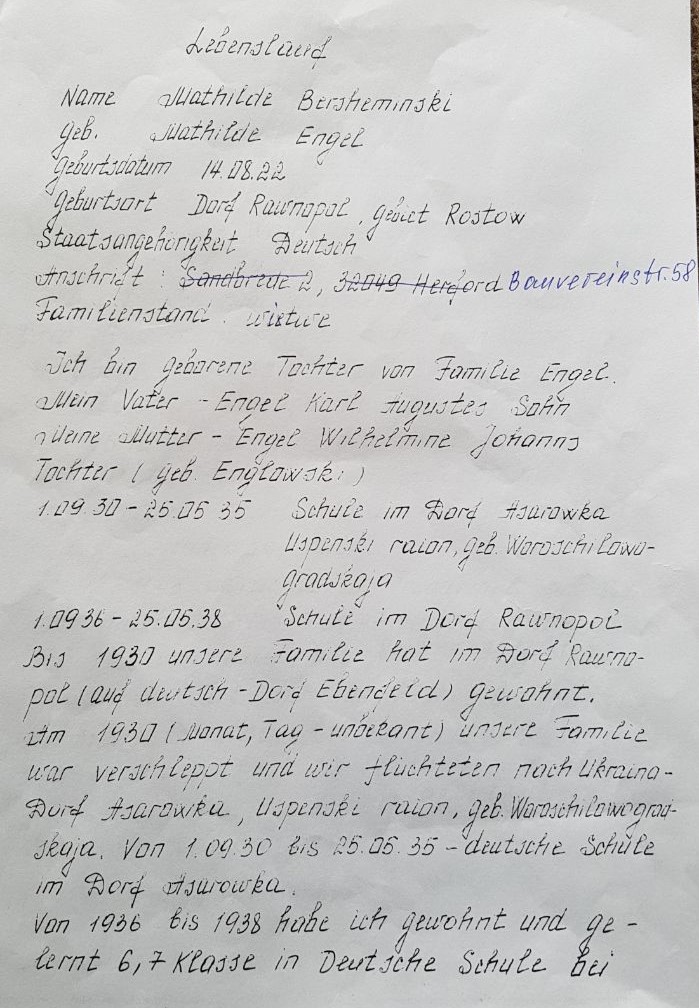 Lebenslauf
Name Mathilde Bersheminski
geb. Mathilde Engel
Geburtsdatum 14.08.22
Geburtsort Dorf Rawnopol, gebiet Rostow
Staatsangehörigkeit Deutsch
Anschrift: Sandbrede 2, 32049 Herford Bauvereinstr. 58
Familienstand. wietwe
Ich bin geborene Tochter von Familie Engel.
Mein Vater - Engel Karl Augustes Sohn
Meine Mutter - Engel Wilhelmine Johanns
Tochter (geb. Englowski)
1.09.30 - 25.05 35 Schule im Dorf Asarowka
Uspenski raion, geb. Woroschilowo-
gradskaja
1.09 36 - 25.05.38 Schule im Dorf Rawnopol
Bis 1930 unsere Familie hat im Dorf Rawno-
pol (auf deutsch - Dorf Ebenfeld) gewohnt.
Am 1930 (Monat, Tag - unbekant) unsere Familie
war verschleppt und wir flüchteten nach Ukraina -
Dorf Asarowka, Uspenski raion, geb. Woroschilowograd-
skaja. Von 1.09.30 bis 25.05.35 - deutsche Schule
im Dorf Asarowka.
Von 1936 bis 1938 habe ich gewohnt und ge-
lernt 6,7 Klasse in Deutsche Schule bei